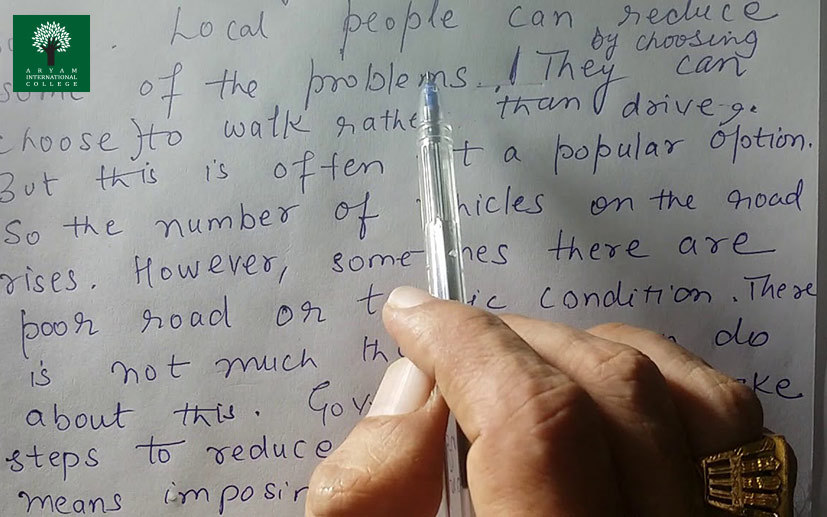 ARYAM
INTERNATIONAL
COLLEGE
Local people can reduce
by choosing
some of the problems. They can
choose to walk rathe than drive.
But this is often t a popular option.
So the number of hicles on the road
rises. However, some nes there are
poor road or t ic condition. There
is not much th do
about this. Gov ke
steps to reduce
means imposin